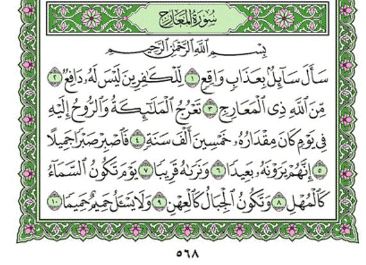 سُورَةُ المَعَارِجِ
بِسۡمِ ٱللَّهِ ٱلرَّحۡمَٰنِ ٱلرَّحِيمِ
سَأَلَ سَآئِلُۢ بِعَذَابٖ وَاقِعٖ ١ لِّلۡكَٰفِرِينَ لَيۡسَ لَهُۥ دَافِعٞ ٢
مِّنَ ٱللَّهِ ذِي ٱلۡمَعَارِجِ ٣ تَعۡرُجُ ٱلۡمَلَٰٓئِكَةُ وَٱلرُّوحُ إِلَيۡهِ
فِي يَوۡمٖ كَانَ مِقۡدَارُهُۥ خَمۡسِينَ أَلۡفَ سَنَةٖ ٤ فَٱصۡبِرۡ صَبۡرٗا جَمِيلًا
٥ إِنَّهُمۡ يَرَوۡنَهُۥ بَعِيدٗا ٦ وَنَرَىٰهُ قَرِيبٗا ٧ يَوۡمَ تَكُونُ ٱلسَّمَآءُ
كَٱلۡمُهۡلِ ٨ وَتَكُونُ ٱلۡجِبَالُ كَٱلۡعِهۡنِ ٩ وَلَا يَسۡـَٔلُ حَمِيمٌ حَمِيمٗا ١٠
٥٦٨